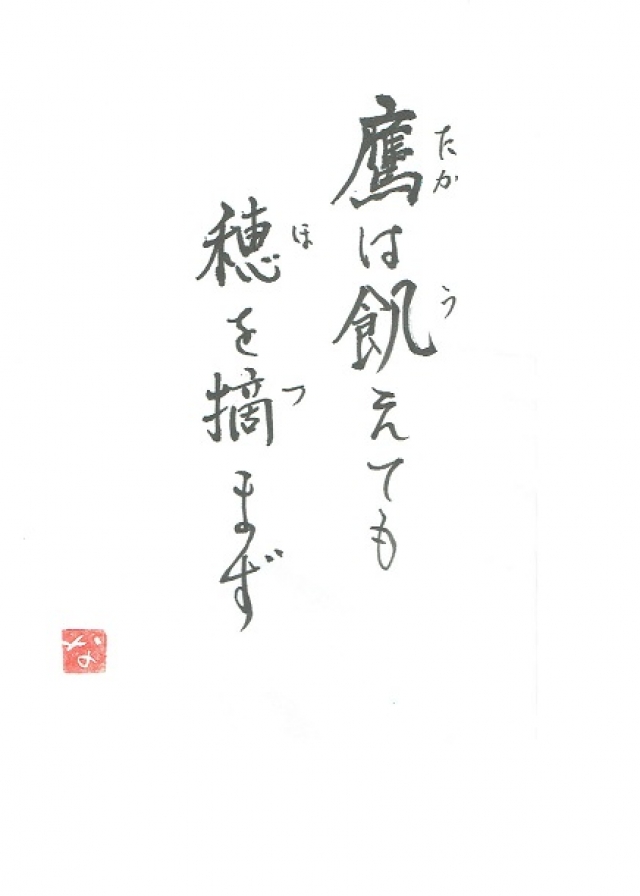 鷹は飢えても
たか
う
穂を摘まず
ほ
つ
な